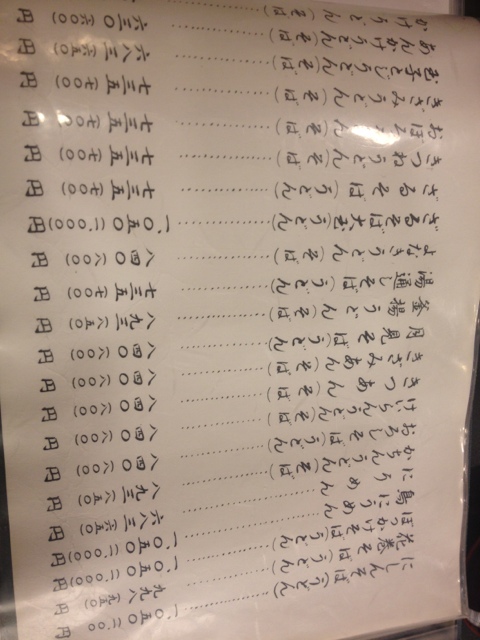 かけうどん(そば)
あんかけうどん(そば)……六三〇(六〇〇)円
玉子とじうどん(そば)……六八三(六五〇)円
きざみうどん(そば)……七三五(七〇〇)円
おぼろうどん(そば)……七三五(七〇〇)円
きつねうどん(そば)……七三五(七〇〇)円
ざるそば(うどん)……七三五(七〇〇)円
ざるそば大盛(うどん)……一、〇五〇(一、〇〇〇)円
よなきうどん(そば)……八四〇(八〇〇)円
湯通しそば(うどん)……七三五(七〇〇)円
釜揚うどん(そば)……八九三(八五〇)円
月見そば(うどん)……八四〇(八〇〇)円
きざみあん(そば)……八四〇(八〇〇)円
きつあん(そば)……八四〇(八〇〇)円
けいらんうどん(そば)……八四〇(八〇〇)円
おろしそば(うどん)……八四〇(八〇〇)円
かちんうどん(そば)……八四〇(八〇〇)円
にうめん……八九三(八五〇)円
鳥にうめん……六八三(六五〇)円
ぼっかけそば(うどん)……一、〇五〇(一、〇〇〇)円
花巻そば(うどん)……一、〇五〇(一、〇〇〇)円
にしんそば(うどん)……九九八(九五〇)円